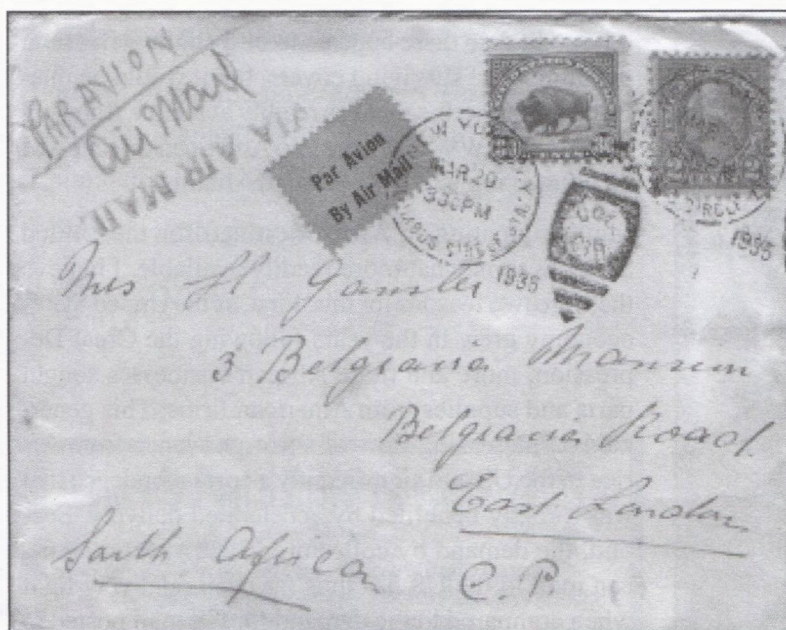 PAR AVION
Air Mail
VIA AIR MAIL
Par Avion
By Air Mail
MAR 20
330PM
1935
2 2
CENTS
1935
Mrs H
3 Belgravia Mansion
Belgravia Road
East London
South African C.P.